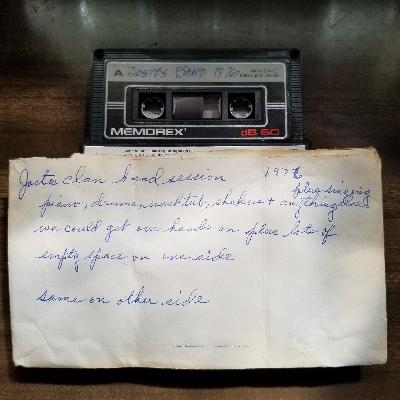 A JOSTA'S BAND 1976
MEMOREX
dB 60
Josta clan band session 1976
plus singing
piano, drums, washtub, shakers + anything else
we could get our hands on plus lots of
empty space on one side
same on other side